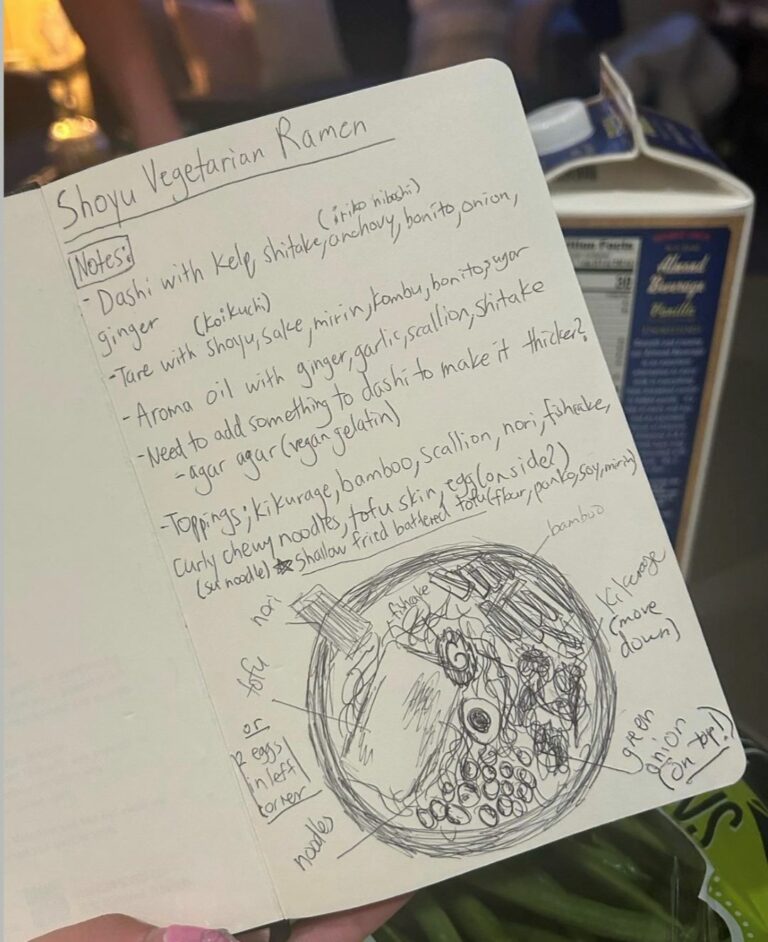 Shoyu Vegetarian Ramen
Notes:
(iriko niboshi)
- Dashi with kelp, shitake, anchovy, bonito, onion,
ginger
(Koikuchi)
-Tare with shoyu, sake, mirin, kombu, bonito, sugar
- Aroma oil with ginger, garlic, scallion, shitake
-Need to add something to dashi to make it thicker?
-agar agar (vegan gelatin)
-Toppings; kikurage, bamboo, scallion, nori, fishcake,
curly chewy noodles, tofu skin, egg (on side?)
(sun noodle) ☆ Shallow fried battered tofu (flour, panko, soy, mirin)
bamboo
nori
fishcake
kikurage
(move
down)
tofu
or
2 eggs
in left
corner
green
onion
(on top!)
noodles
Nutrition Facts
30
Almond
Beverage
Vanilla